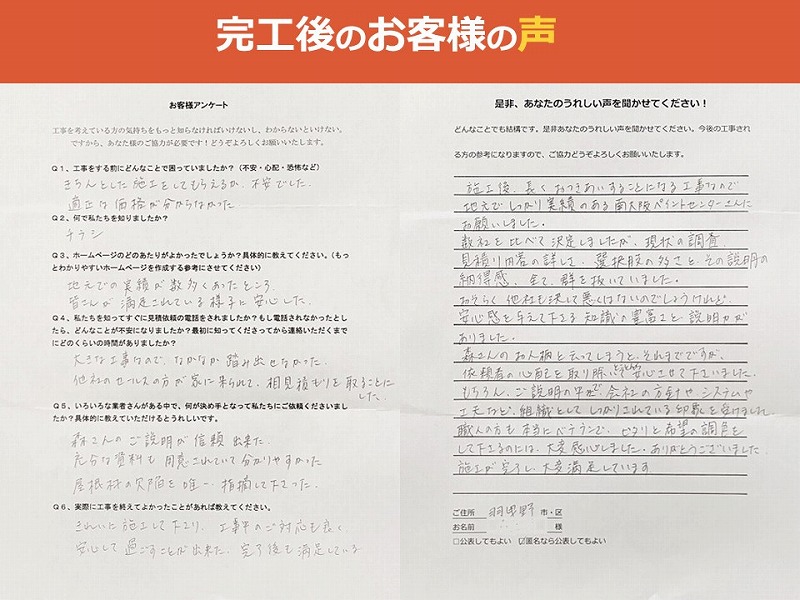 完工後のお客様の声
お客様アンケート
工事を考えている方の気持ちをもっと知らなければいけないし、わからないといけない。
ですから、あなた様のご協力が必要です！どうぞよろしくお願いいたします。
Q1、工事をする前にどんなことで困っていましたか？（不安・心配・恐怖など）
きちんとした施工をしてもらえるか、不安でした。
適正な価格が分からなかった。
Q2、何で私たちを知りましたか？
チラシ
Q3、ホームページのどのあたりがよかったでしょうか？具体的に教えてください。（もっ
とわかりやすいホームページを作成する参考にさせてください）
地元での実績が数多くあったところ
皆さんが満足されている様子に安心した。
Q4、私たちを知ってすぐに見積依頼の電話をされましたか？もし電話されなかったとし
たら、どんなことが不安になりましたか？最初に知ってくださってから連絡いただくまで
にどのくらいの時間がありましたか？
大きな工事なので、なかなか踏み出せなかった。
他社のセールスの方が家に来られて、相見積もりを取ることに
した。
Q5、いろいろな業者さんがある中で、何が決め手となって私たちにご依頼くださいまし
たか？具体的に教えていただけるとうれしいです。
森さんのご説明が信頼出来た。
充分な資料も用意されていて分かりやすかった
屋根材の欠陥を唯一指摘して下さった。
Q6、実際に工事を終えてよかったことがあれば教えてください。
きれいに施工して下さり、工事中のご対応も良く、
安心して過ごすことが出来た。完了後も満足している
是非、あなたのうれしい声を聞かせてください！
どんなことでも結構です。是非あなたのうれしい声を聞かせてください。今後の工事され
る方の参考になりますので、ご協力どうぞよろしくお願いいたします。
施工後、長くおつきあいすることになる工事なので
地元でしっかり実績のある南大阪ペイントセンターさんに
お願いしました。
数社を比べて決定しましたが、現状の調査、
見積り内容の詳しさ、選択肢の多さと、その説明の
納得感、全て、群を抜いていました。
おそらく他社も決して悪くはないのでしょうけれど、
安心感を与えて下さる知識の豊富さと、説明力が
ありました。
森さんのお人柄と云ってしまうと、それまでですが、
依頼者の心配を取り除いて、安心させて下さいました。
もちろん、ご説明の中で、会社の方針や、システムや
工夫など、組織としてしっかりされている印象を受けました。
職人の方も本当にベテランで、ピタリと希望の調色を
して下さるのには、大変感心しました。ありがとうございました。
施工が完了し、大変満足しています
ご住所 羽曳野 市・区
お名前 様
□公表してもよい ☑匿名なら公表してもよい